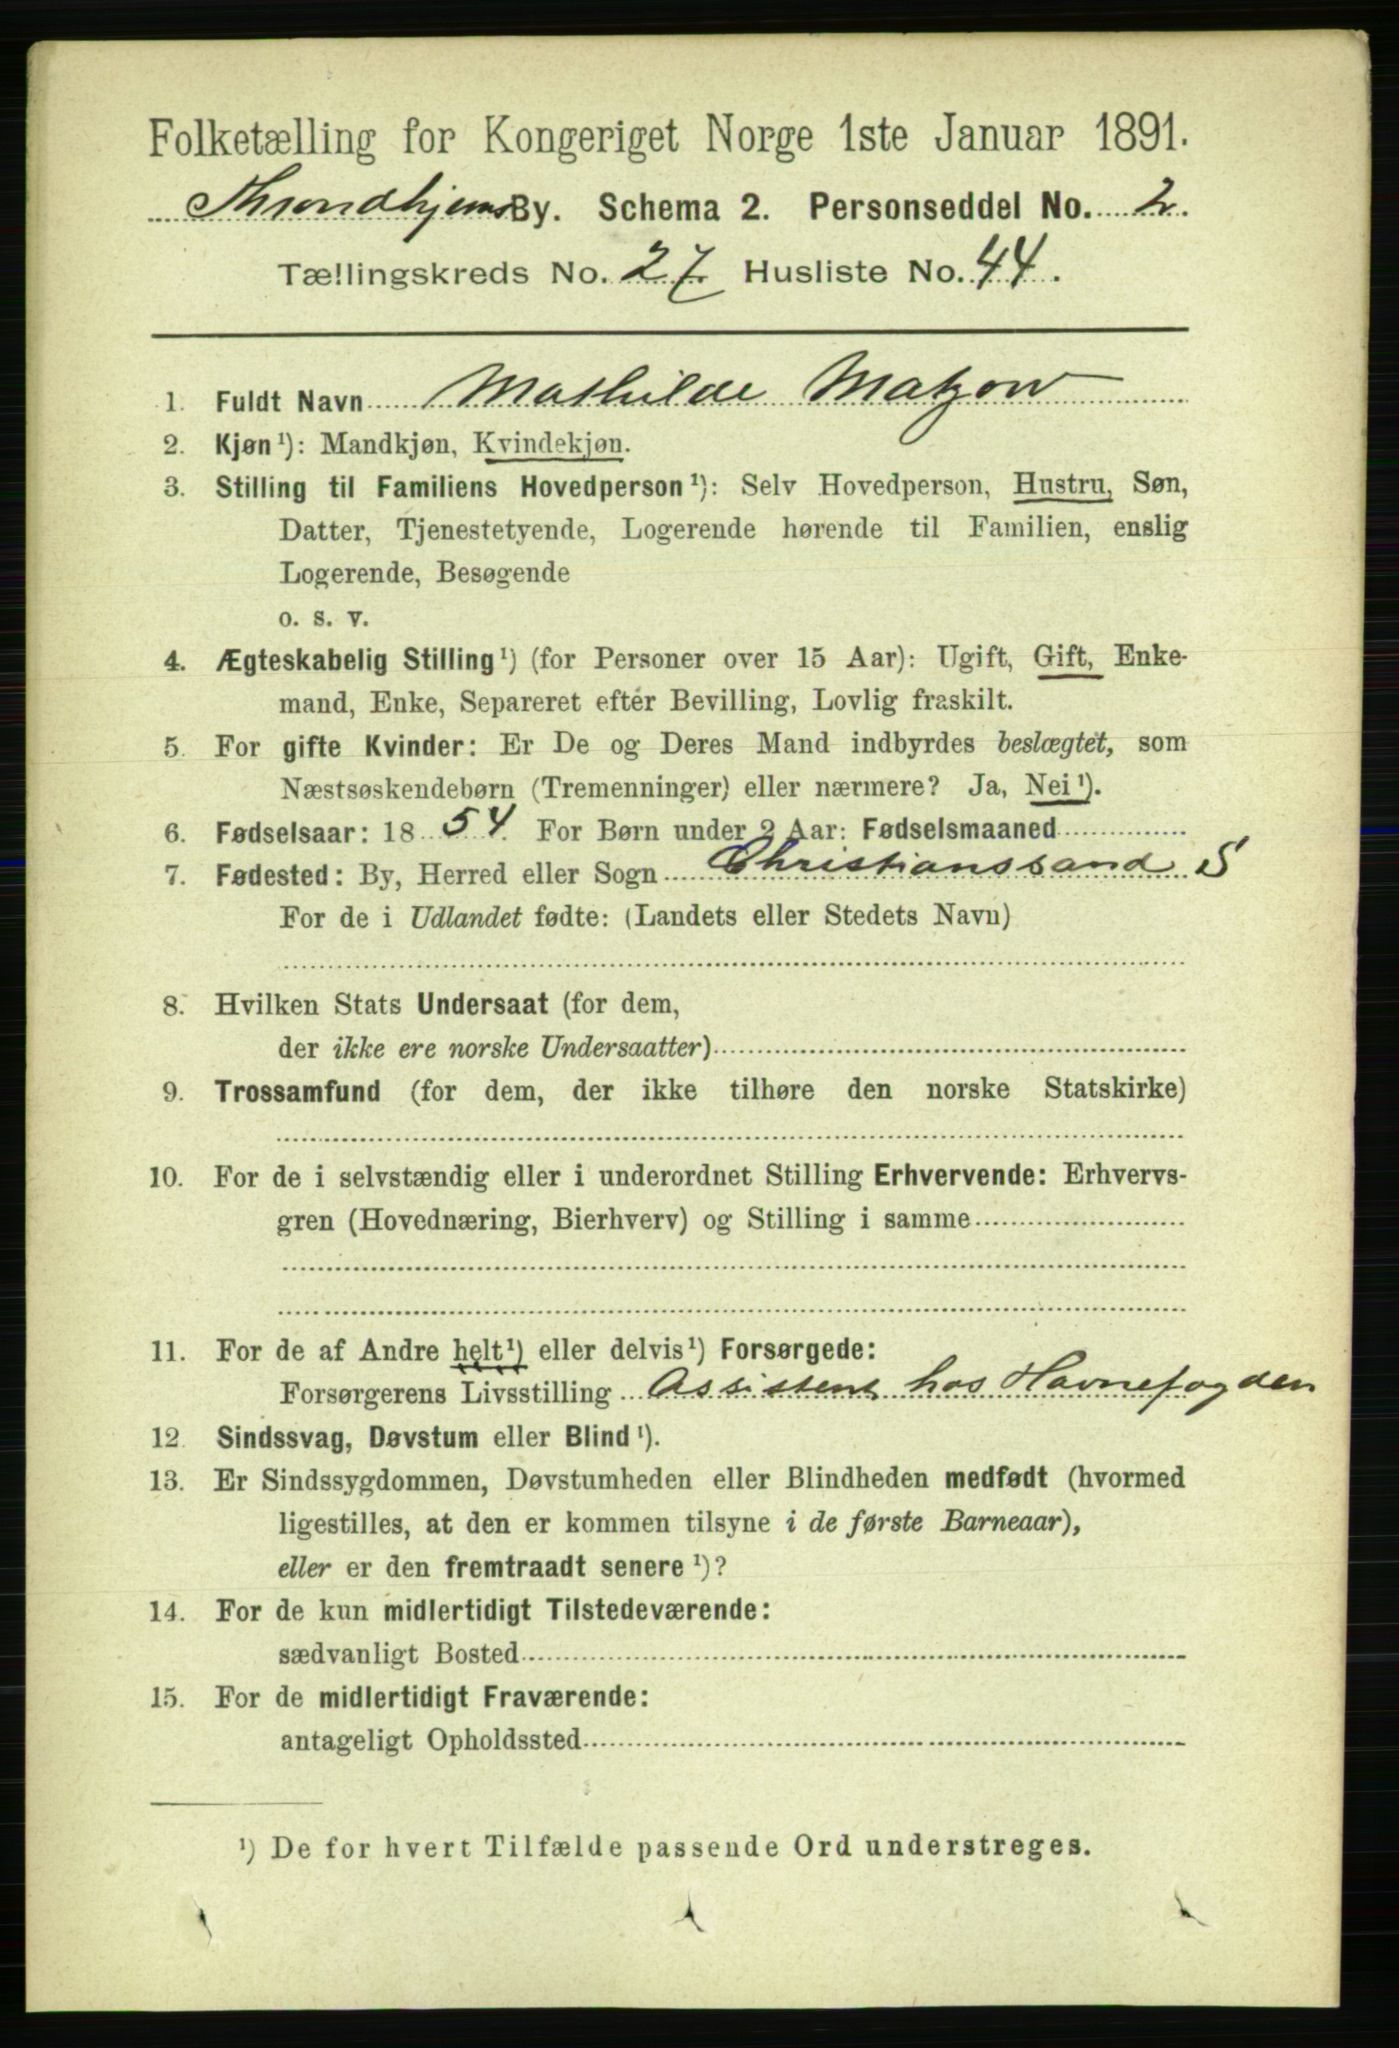 Folketælling for Kongeriget Norge 1ste Januar 1891.
Throndhjems By. Schema 2. Personseddel No. 2.
Tællingskreds No. 27 Husliste No. 44.
1. Fuldt Navn Mathilde Matzow
2. Kjøn ¹): Mandkjøn, Kvindekjøn.
3. Stilling til Familiens Hovedperson ¹): Selv Hovedperson, Hustru, Søn,
Datter, Tjenestetyende, Logerende hørende til Familien, enslig
Logerende, Besøgende
o. s. v.
4. Ægteskabelig Stilling ¹) (for Personer over 15 Aar): Ugift, Gift, Enke-
mand, Enke, Separeret efter Bevilling, Lovlig fraskilt.
5. For gifte Kvinder: Er De og Deres Mand indbyrdes beslægtet, som
Næstsøskendebørn (Tremenninger) eller nærmere? Ja, Nei ¹).
6. Fødselsaar: 1854. For Børn under 2 Aar: Fødselsmaaned
7. Fødested: By, Herred eller Sogn Christianssand S
For de i Udlandet fødte: (Landets eller Stedets Navn)
8. Hvilken Stats Undersaat (for dem,
der ikke ere norske Undersaatter)
9. Trossamfund (for dem, der ikke tilhøre den norske Statskirke)
10. For de i selvstændig eller i underordnet Stilling Erhvervende: Erhvervs-
gren (Hovednæring, Bierhverv) og Stilling i samme
11. For de af Andre helt ¹) eller delvis ¹) Forsørgede:
Forsørgerens Livsstilling Assistent hos Havnefogden
12. Sindssvag, Døvstum eller Blind ¹).
13. Er Sindssygdommen, Døvstumheden eller Blindheden medfødt (hvormed
ligestilles, at den er kommen tilsyne i de første Barneaar),
eller er den fremtraadt senere ¹)?
14. For de kun midlertidigt Tilstedeværende:
sædvanligt Bosted
15. For de midlertidigt Fraværende:
antageligt Opholdssted
¹) De for hvert Tilfælde passende Ord understreges.